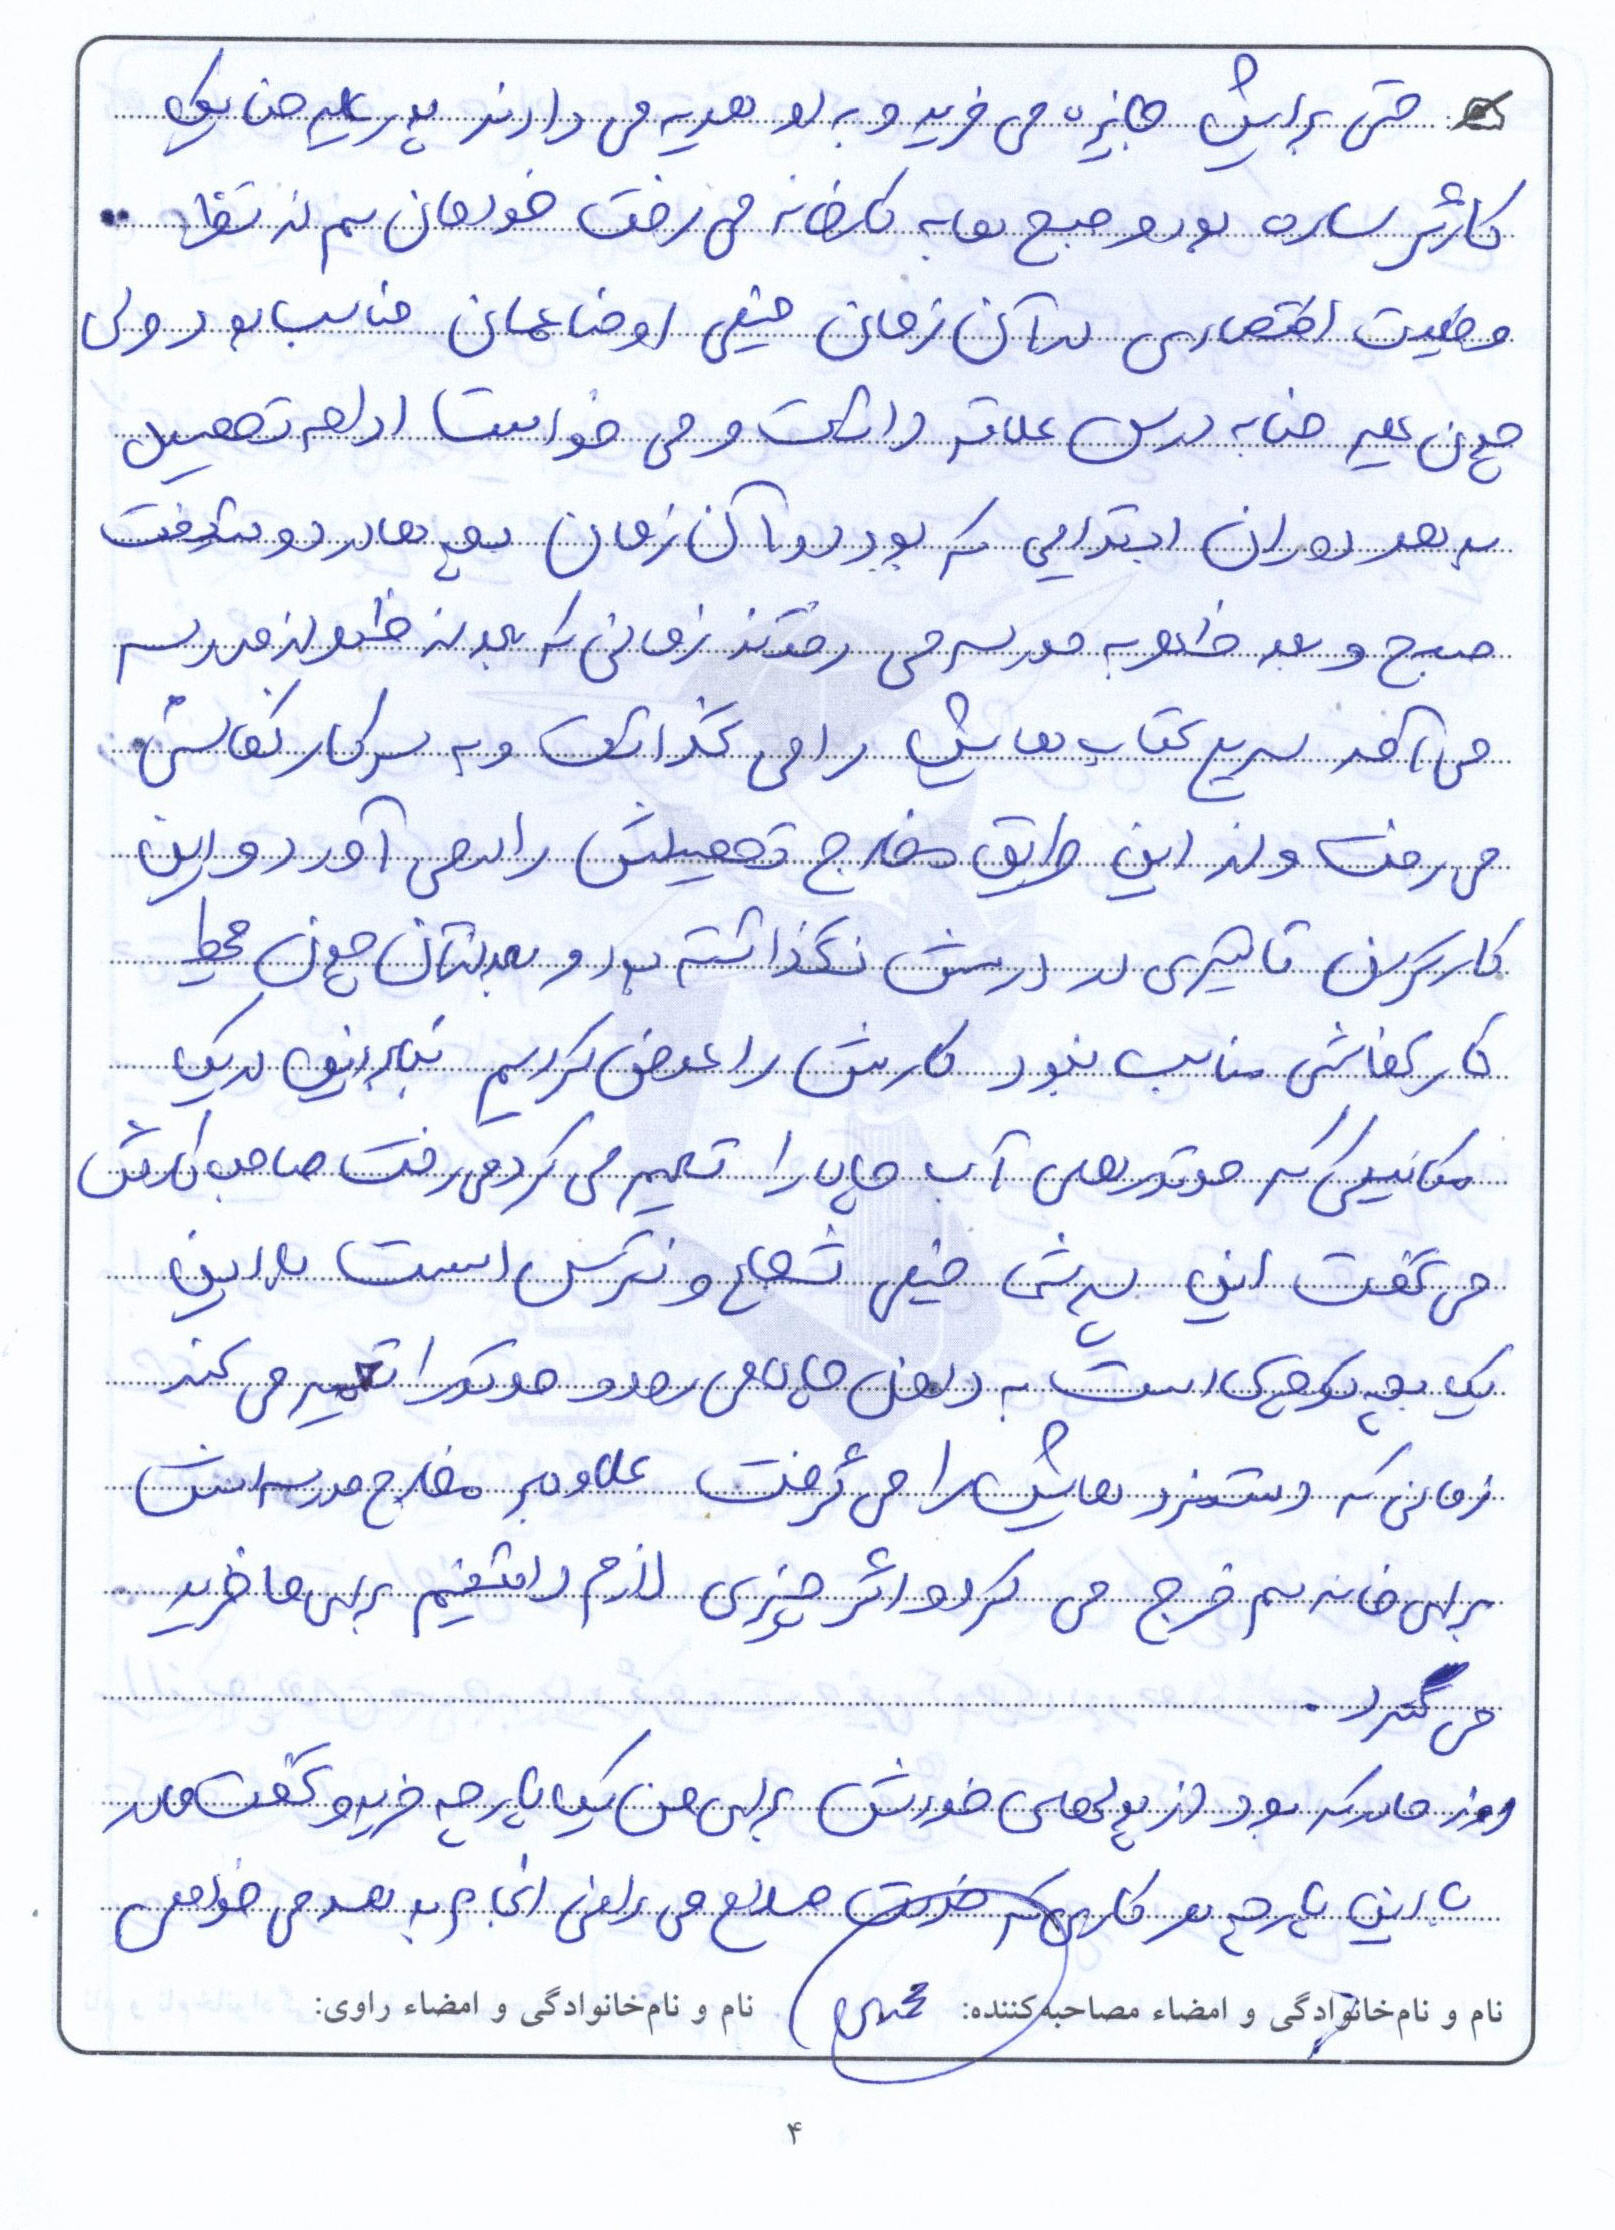 حتی برایش جایزه می خرید و به او هدیه می دادند پدر علیرضا یک
کارگر ساده بود و صبح ها به کارخانه می رفت خودمان هم از نظر
وضعیت اقتصادی در آن زمان خیلی اوضاعمان مناسب بود ولی
چون علیرضا به درس علاقه داشت و می خواست ادامه تحصیل
بدهد دوران ابتدایی که بود در آن زمان بچه ها در دو شیفت
صبح و بعد ظهر به مدرسه می رفتند زمانی که بعد از ظهر از مدرسه
می آمد سریع کتاب هایش را می گذاشت و به سر کار کفاشی
می رفت و از این طریق مخارج تحصیلش را در می آورد و این
کار کردن تاثیری در درسش نگذاشته بود و دبستان چون محیط
کار کفاشی مناسب نبود کارش را عوض کردیم بنابراین در یک
مکانیکی که موتورهای آب چاه را تعمیر می کرد می رفت صاحب کارش
می گفت این پسر شما خیلی شجاع و نترس است با این
یک بچه کوچک است به داخل چاه می رود و موتور را تعمیر می کند
زمانی که دستمزدهایش را می گرفت علاوه بر مخارج مدرسه اش
برای خانه هم خرج می کرد و اگر چیزی لازم داشتیم برای ما خرید
می کرد.
روز مادر که بود از پولهای خودش برای من یک پارچه خرید و گفت مادر
با این پارچه هر کاری که خودت صلاح می دانی انجام بده می خواهی
نام و نام‌خانوادگی و امضاء مصاحبه‌کننده: نام و نام‌خانوادگی و امضاء راوی:
۴